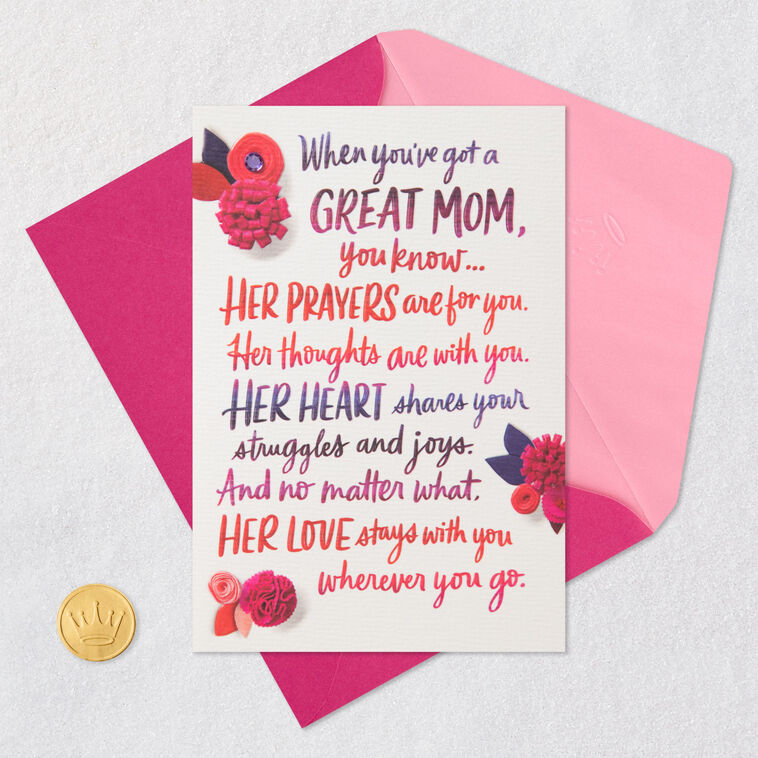 When you've got a
GREAT MOM,
you know...
HER PRAYERS are for you.
Her thoughts are with you.
HER HEART shares your
struggles and joys.
And no matter what,
HER LOVE stays with you
wherever you go.